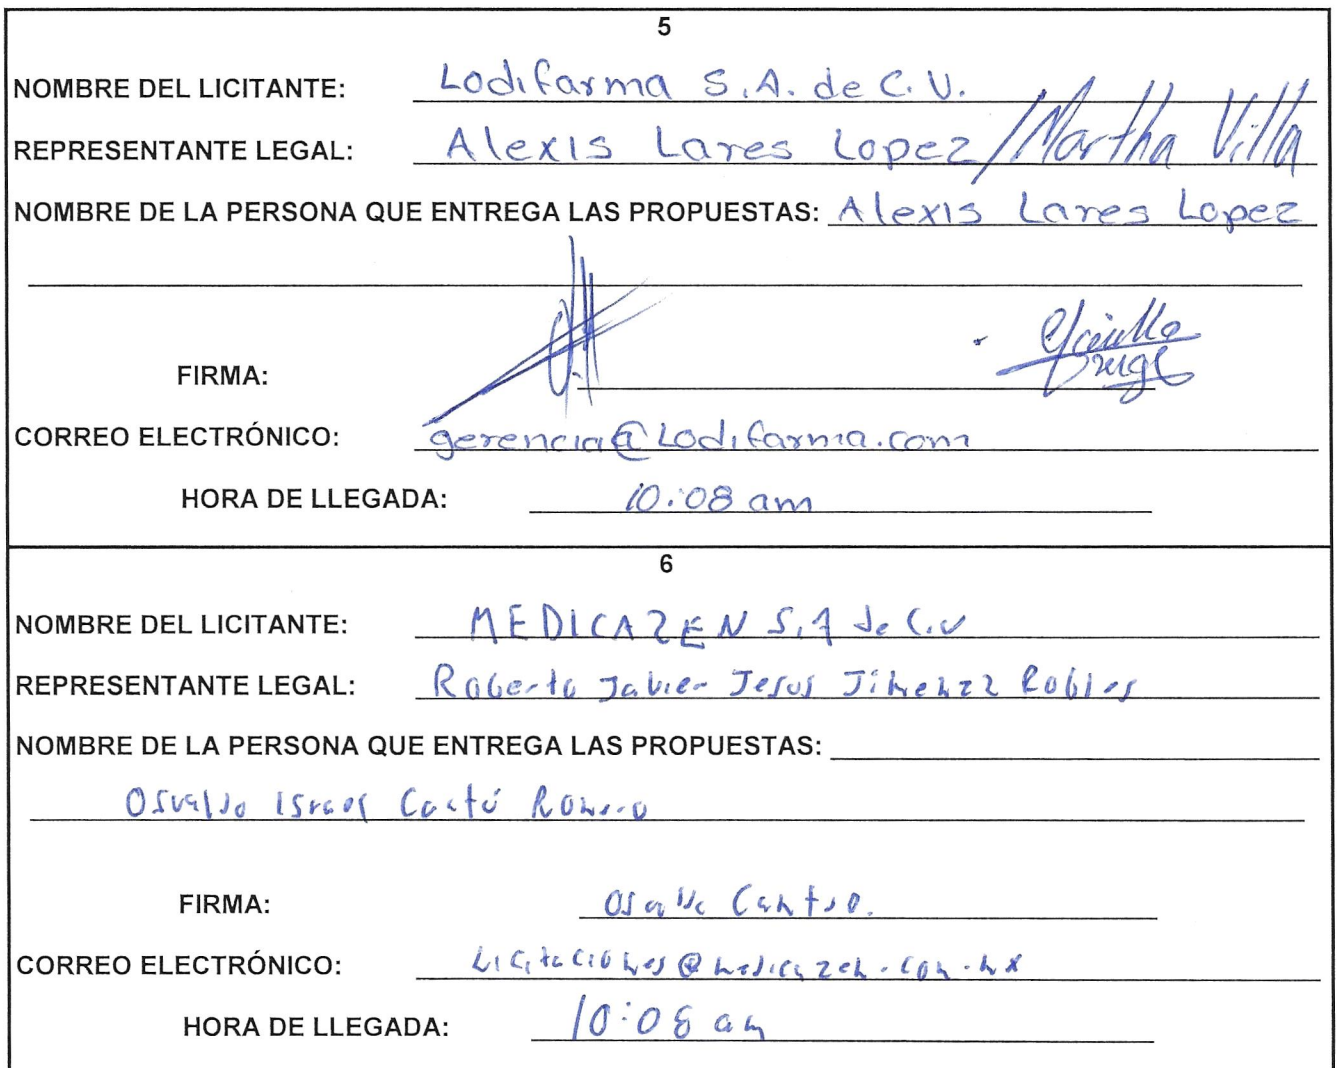 5
NOMBRE DEL LICITANTE: Lodifarma S.A. de C.V.
REPRESENTANTE LEGAL: Alexis Lares Lopez/Martha Villa
NOMBRE DE LA PERSONA QUE ENTREGA LAS PROPUESTAS: Alexis Lares Lopez
FIRMA:
CORREO ELECTRÓNICO: gerencia@Lodifarma.com
HORA DE LLEGADA: 10:08 am
6
NOMBRE DEL LICITANTE: MEDICAZEN S.A de C.V
REPRESENTANTE LEGAL: Roberto Javier Jesus Jimenez Robles
NOMBRE DE LA PERSONA QUE ENTREGA LAS PROPUESTAS:
Osvaldo Israel Romero
FIRMA: Osvaldo
CORREO ELECTRÓNICO: Licitaciones@medicazen.com.mx
HORA DE LLEGADA: 10:08 am